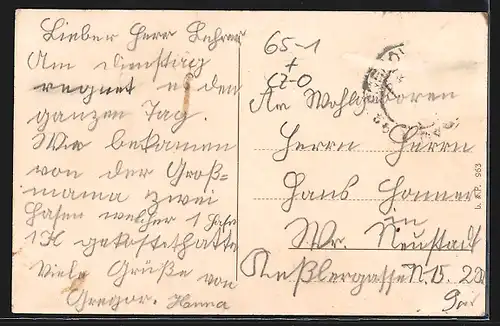 Lieber Herr Lehrer
Am Dienstag
regnet es den
ganzen Tag.
Wir bekamen
von der Groß=
mama zwei
Hasen welcher 1 Hase
1 K gekostet hatte
Viele Grüße von
Gregor. Hanna
65-1
+
An Wohlgeboren
Herrn Herrn
Hans
in
Wr. Neustadt
Keßlergasse N. 15.
b. K. P. 963